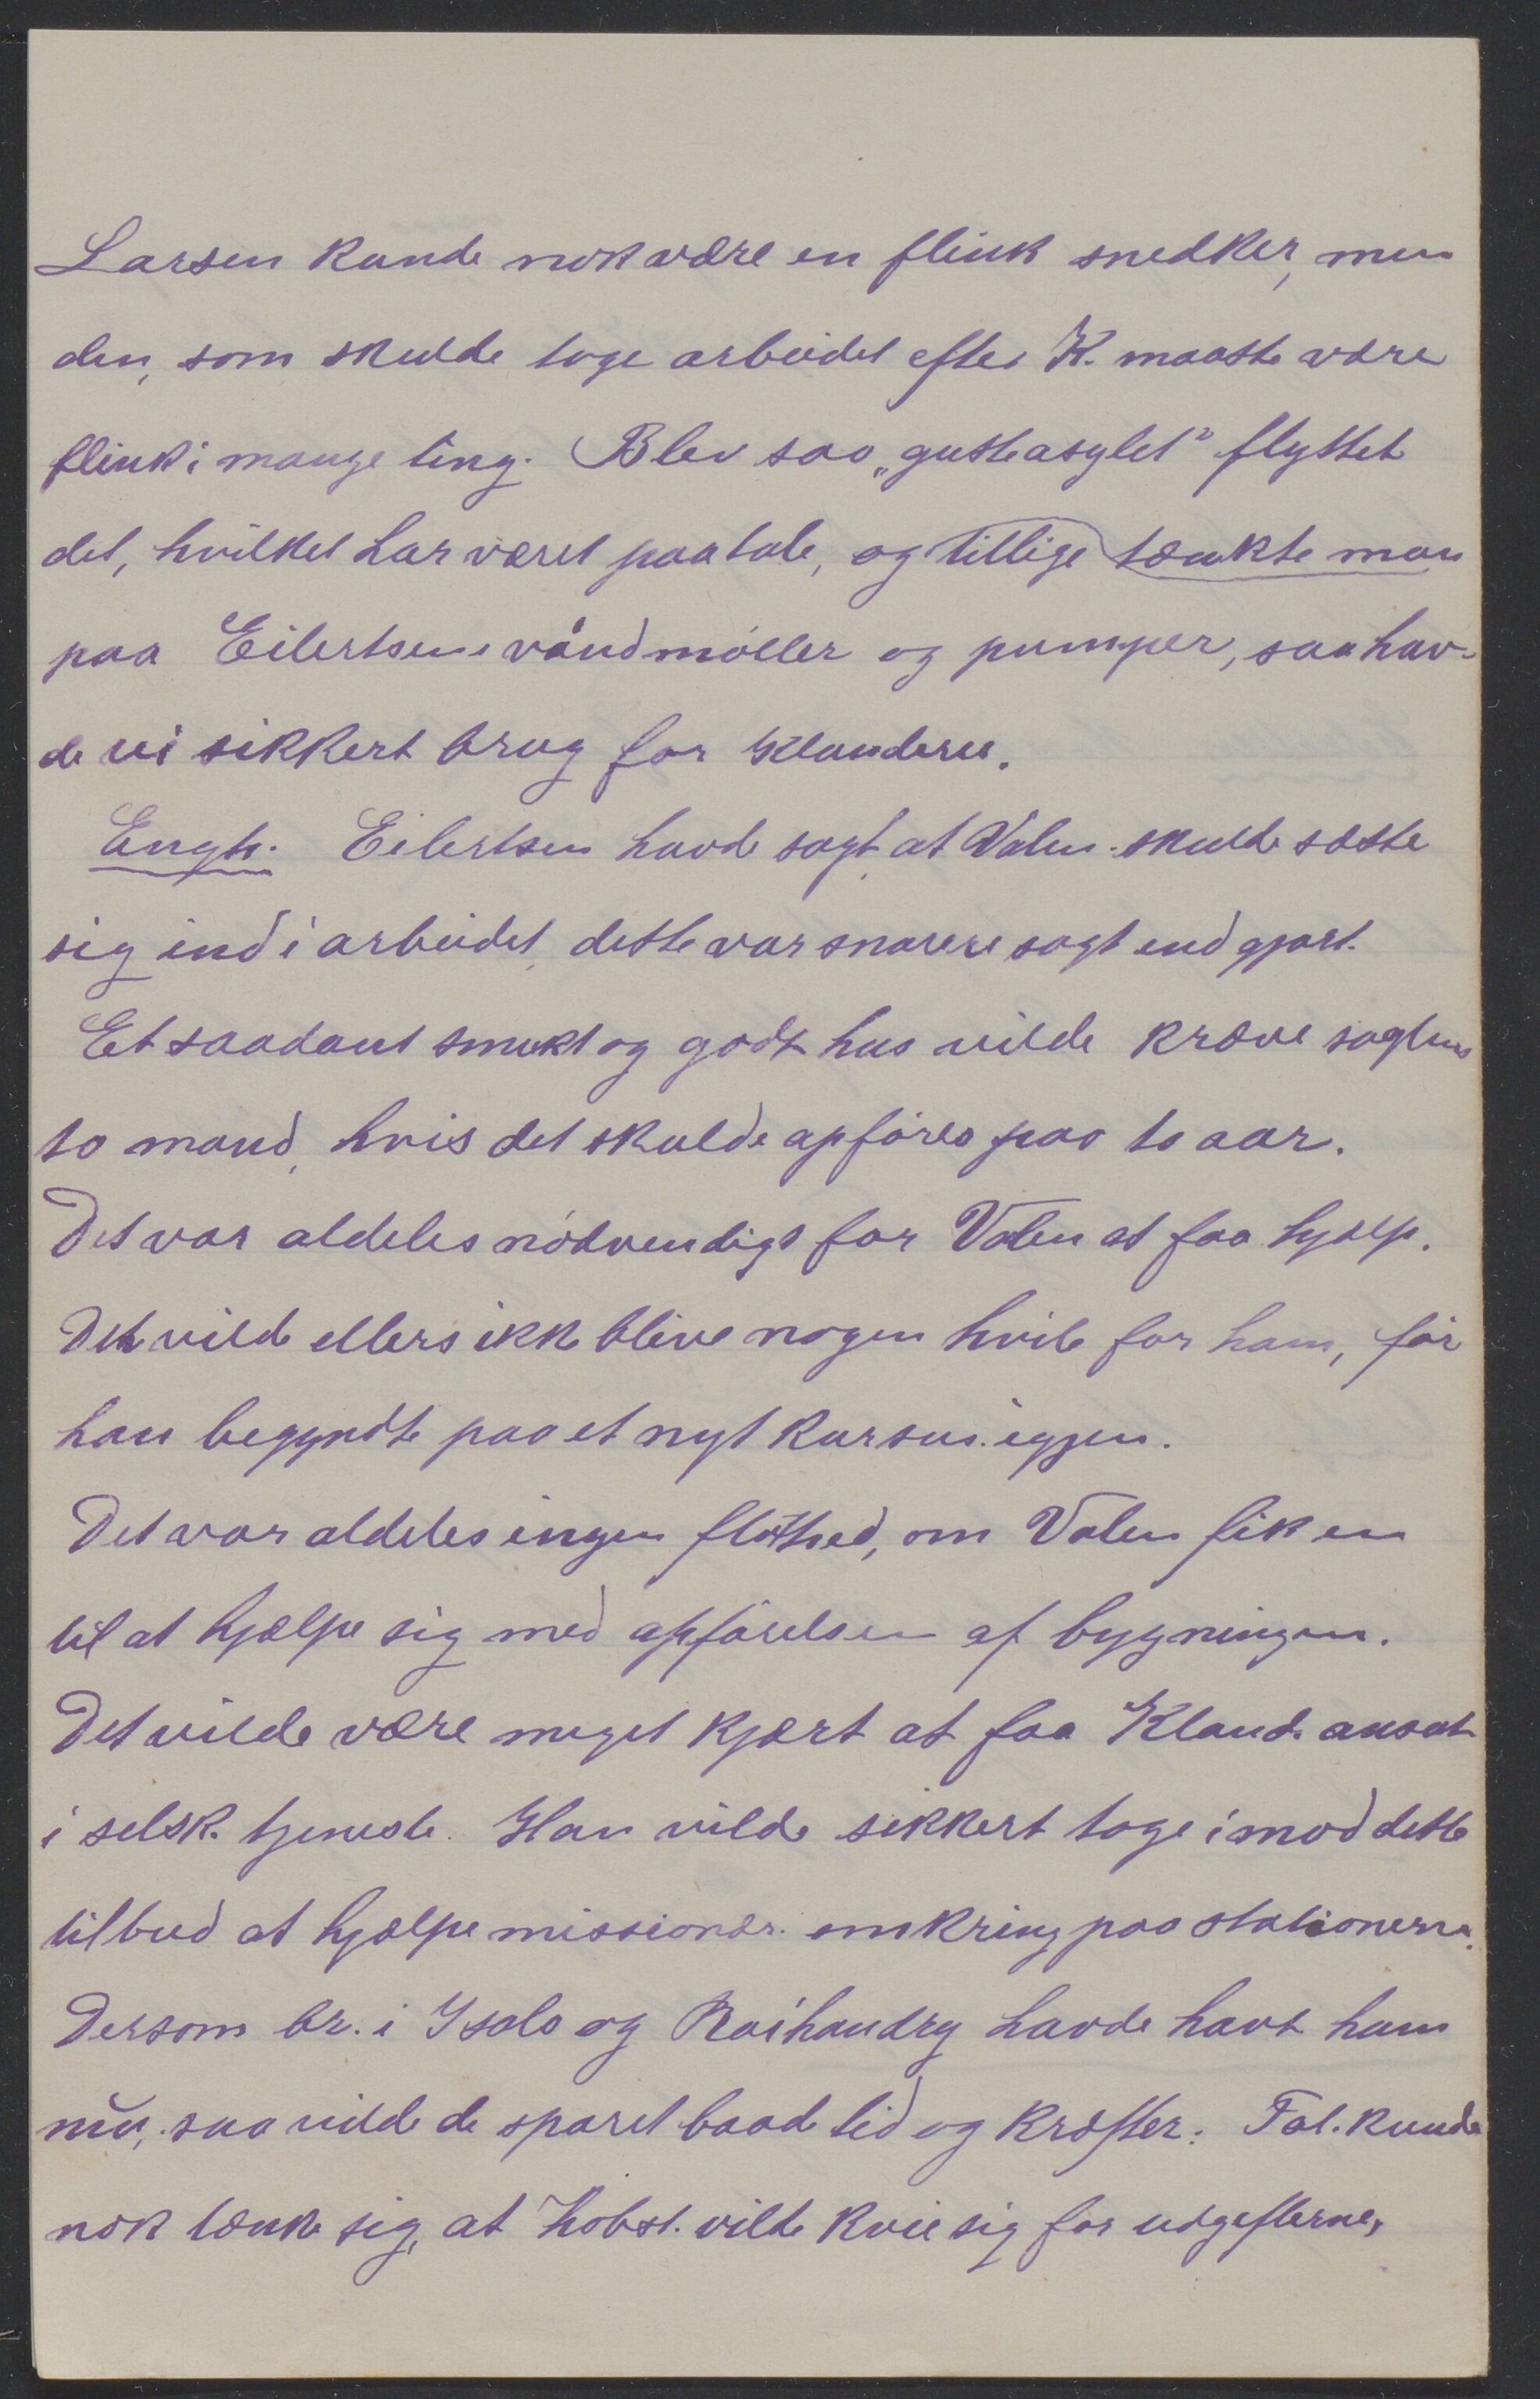 Larsen kunde nok være en flink snedker, men
den, som skulde tage arbeidet efter K. maatte være
flink i mange ting. Blev saa „gutteasylet" flyttet
det, hvilket har været paatale, og tillige tænkte man
paa Eilertsens vandmøller og pumper, saa hav-
de vi sikkert brug for Klanderu.
Engh. Eilertsen havde sagt at Valen skulde sætte
sig ind i arbeidet, dette var snarere sagt end gjort.
Et saadant smukt og godt hus vilde kræve sagtens
to mand, hvis det skulde opføres paa to aar.
Det var aldeles nødvendigt for Valen at faa hjælp.
Det vilde ellers ikke blive nogen hvile for ham, før
han begyndte paa et nyt kursus igjen.
Det var aldeles ingen flothed, om Valen fik en
til at hjælpe sig med opførelsen af bygningen.
Det vilde være meget kjært at faa Kland. ansat
i selsk. tjeneste. Han vilde sikkert tage imod dette
tilbud at hjælpe missionær. omkring paa stationerne.
Dersom br. i Isalo og Raihandry havde havt ham
nu, saa vilde de sparet baade tid og kræfter. Tal. kunde
nok tænke sig, at hvbst. vilde kvie sig for udgifterne,